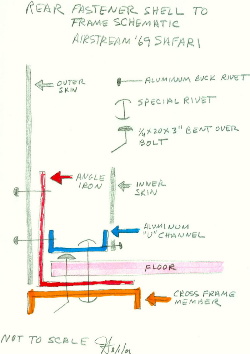 REAR FASTENER SHELL TO
FRAME SCHEMATIC
AIRSTREAM '69 SAFARI
OUTER
SKIN
ALUMINUM BUCK RIVET
SPECIAL RIVET
1/4x20x3" BENT OVER
BOLT
ANGLE
IRON
INNER
SKIN
ALUMINUM
"U" CHANNEL
FLOOR
CROSS FRAME
MEMBER
NOT TO SCALE